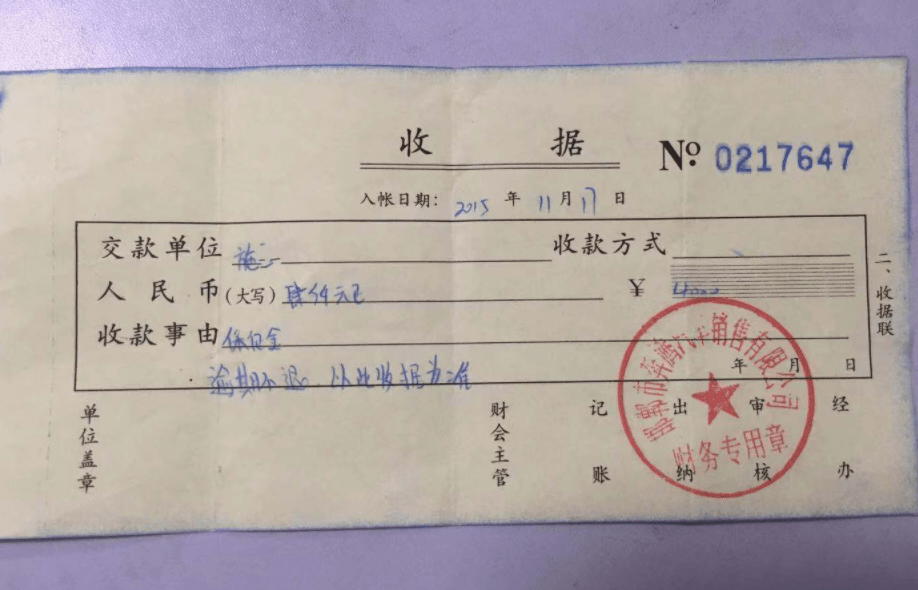 收 据
№ 0217647
入帐日期: 2015 年 11 月 17 日
交款单位 施 收款方式
人民币(大写) 仟元 ¥ 4000
收款事由 保证金
年 月 日
逾期不退 以此收据为准
二、收据联
单位盖章
财会主管
记账
出纳
审核
经办
邯郸市 销售有限公司
财务专用章